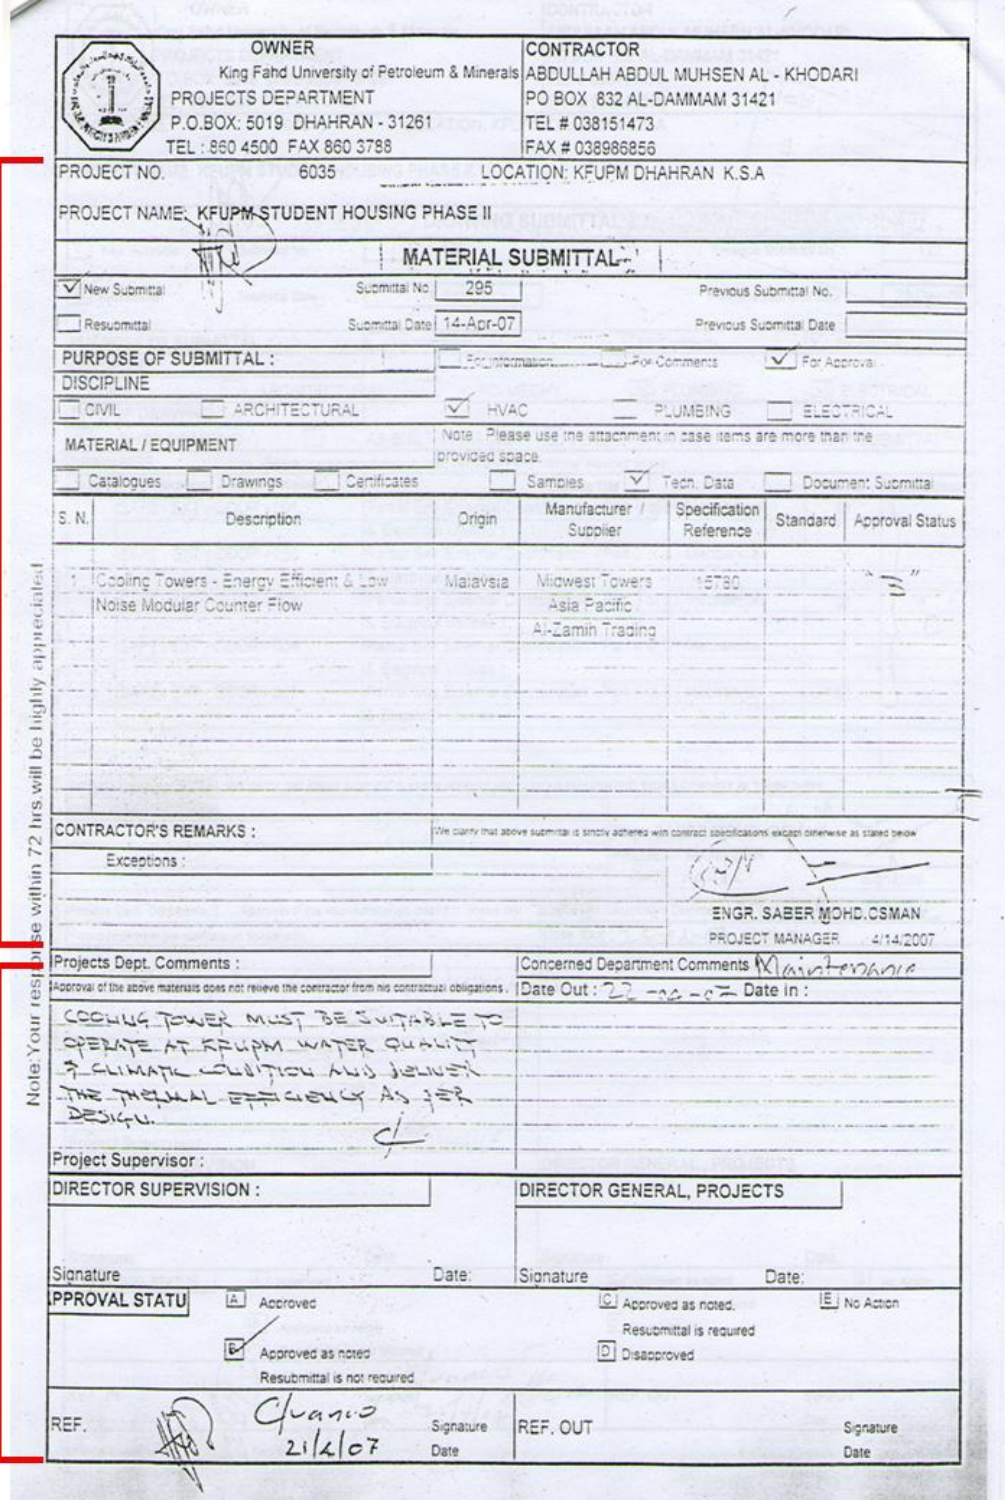 OWNER
King Fahd University of Petroleum & Minerals
PROJECTS DEPARTMENT
P.O.BOX: 5019 DHAHRAN - 31261
TEL : 860 4500 FAX 860 3788
CONTRACTOR
ABDULLAH ABDUL MUHSEN AL - KHODARI
PO BOX 832 AL-DAMMAM 31421
TEL # 038151473
FAX # 038986856
PROJECT NO. 6035 LOCATION: KFUPM DHAHRAN K.S.A
PROJECT NAME: KFUPM STUDENT HOUSING PHASE II
MATERIAL SUBMITTAL
New Submittal Submittal No. 295 Previous Submittal No.
Resubmittal Submittal Date 14-Apr-07 Previous Submittal Date
PURPOSE OF SUBMITTAL : For Information For Comments For Approval
DISCIPLINE
CIVIL ARCHITECTURAL HVAC PLUMBING ELECTRICAL
MATERIAL / EQUIPMENT
Note : Please use the attachment in case items are more than the
provided space.
Catalogues Drawings Certificates Samples Tech. Data Document Submittal
S. N. Description Origin Manufacturer / Supplier Specification Reference Standard Approval Status
1 Cooling Towers - Energy Efficient & Low Malaysia Midwest Towers 15780
Noise Modular Counter Flow Asia Pacific
Al-Zamin Trading
CONTRACTOR'S REMARKS : We clarify that above submittal is strictly adhered with contract specifications except otherwise as stated below
Exceptions :
ENGR. SABER MOHD.OSMAN
PROJECT MANAGER 4/14/2007
Note:Your response within 72 hrs.will be highly appreciated
Projects Dept. Comments :
Approval of the above materials does not relieve the contractor from his contractual obligations.
COOLING TOWER MUST BE SUITABLE TO
OPERATE AT KFUPM WATER QUALITY
& CLIMATIC CONDITION AND DELIVER
THE THERMAL EFFICIENCY AS PER
DESIGN.
Project Supervisor :
Concerned Department Comments Maintenance
Date Out : Date In :
DIRECTOR SUPERVISION :
Signature Date:
DIRECTOR GENERAL, PROJECTS
Signature Date:
PPROVAL STATU
A Approved
B Approved as noted
Resubmittal is not required
C Approved as noted.
Resubmittal is required
D Disapproved
E No Action
REF.
21/4/07
Signature
Date
REF. OUT
Signature
Date